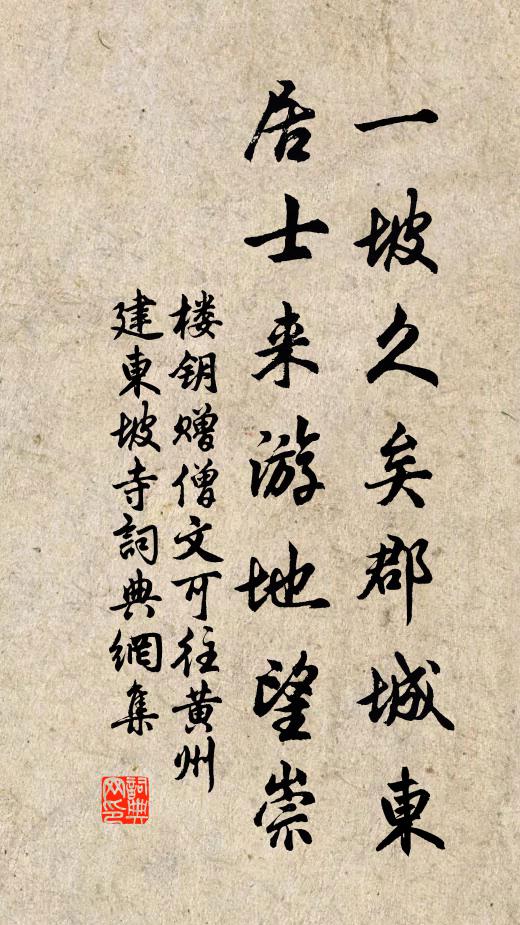 一坡久矣郡城東
居士来游地望崇
楼钥赠僧文可往黄州
建東坡寺詞典網集
詞典
网印